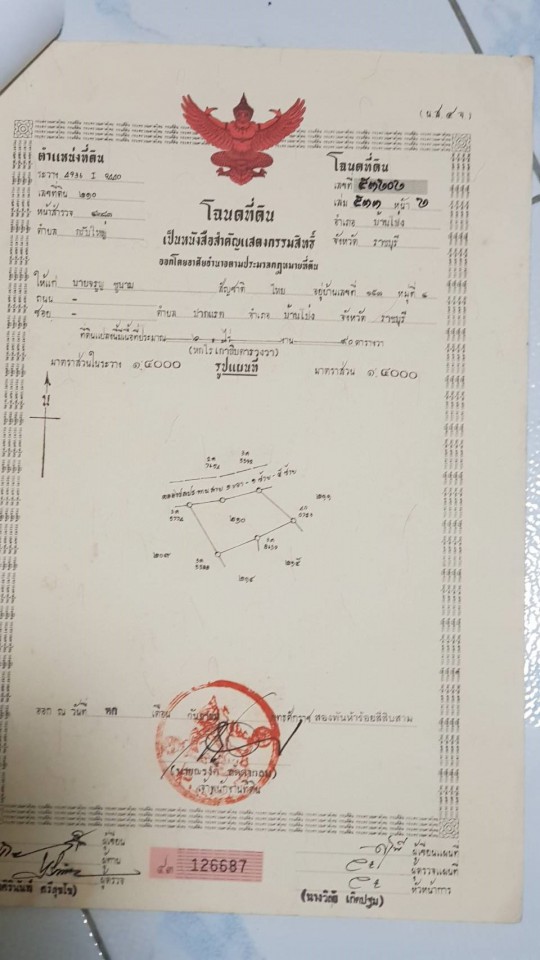 (น.ส.๔ จ)
ตำแหน่งที่ดิน
ระวาง 4936 I
เลขที่ดิน ๒๑๐
หน้าสำรวจ
ตำบล กรับใหญ่
โฉนดที่ดิน
เลขที่
เล่ม ๕๓๓ หน้า ๖
อำเภอ บ้านโป่ง
จังหวัด ราชบุรี
โฉนดที่ดิน
เป็นหนังสือสำคัญแสดงกรรมสิทธิ์
ออกโดยอาศัยอำนาจตามประมวลกฎหมายที่ดิน
ให้แก่ นายจรูญ สัญชาติ ไทย อยู่บ้านเลขที่ ๑๕๓ หมู่ที่ ๑
ถนน -
ซอย - ตำบล ปากแรต อำเภอ บ้านโป่ง จังหวัด ราชบุรี
ที่ดินแปลงนี้มีเนื้อที่ประมาณ ๖ ไร่ - งาน ๙๐ ตารางวา
(หกไร่เก้าสิบตารางวา)
มาตราส่วนในระวาง ๑:๔๐๐๐ รูปแผนที่ มาตราส่วน ๑:๔๐๐๐
น
๒๑๑
๒๑๐
๒๐๙
๒๑๔
๒๑๕
ออก ณ วันที่ หก เดือน กันยายน พุทธศักราช สองพันห้าร้อยสี่สิบสาม
เจ้าพนักงานที่ดิน
ผู้เขียน
ผู้ทาน
ผู้ตรวจ
๔๓ 126687
ผู้เขียนแผนที่
ผู้ตรวจแผนที่
หัวหน้าการ